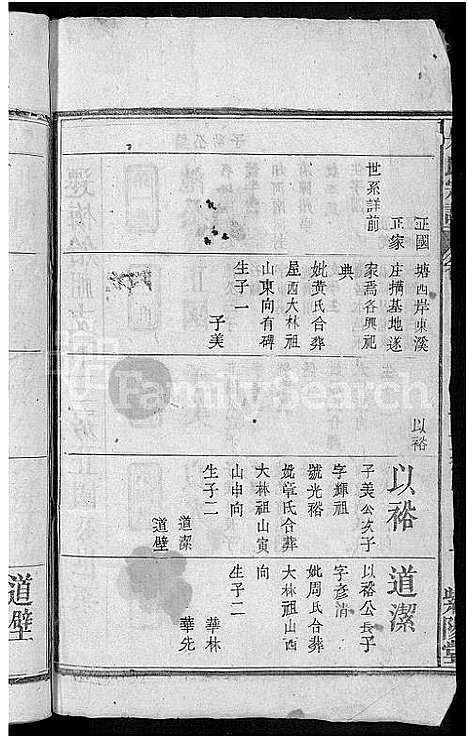 正國 塘西岸東溪
正家 庄横基地遂
世系詳前 家焉各興祀
典
妣黄氏合葬
屋西大林祖
山東向有碑
生子一
子美
以裕
以裕
子美公次子
字輝祖
號光裕
妣章氏合葬
大林祖山寅
山申向
生子二
道潔
道璧
道潔
以裕公長子
字彦清
妣周氏合葬
大林祖山西
向
生子二
華林
華先
紫陽堂
道璧
FamilySearch